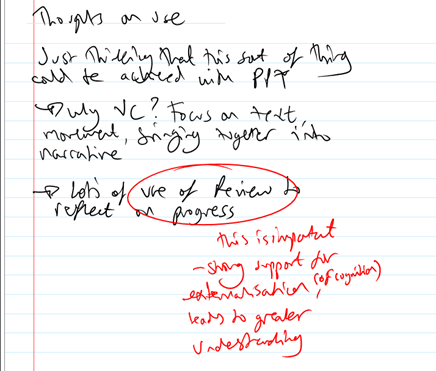 Thoughts on use
Just thinking that this sort of thing
could be achieved with PPT
→ Why VC? Focus on text,
movement, bringing together into
narrative
→ Lots of use of Review to
reflect on progress
this is important
- strong support for
externalisation (of cognition),
leads to greater
understanding